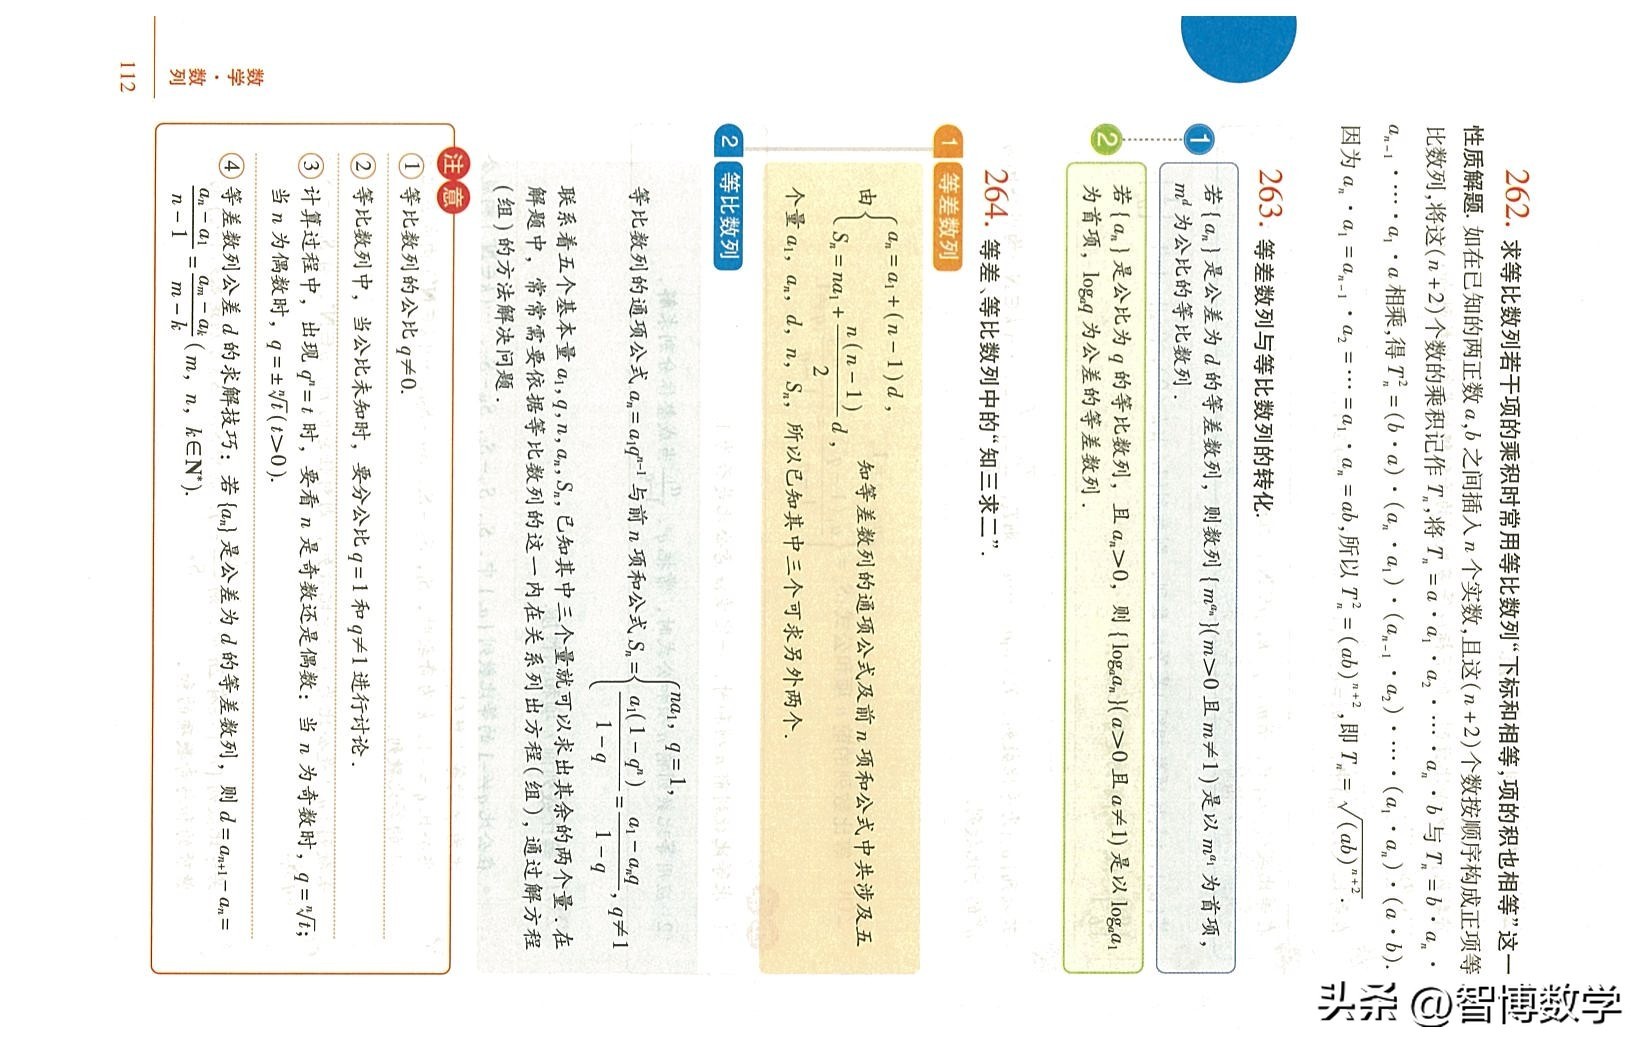 262. 求等比数列若干项的乘积时常用等比数列“下标和相等,项的积也相等”这一
性质解题. 如在已知的两正数 a,b 之间插入 n 个实数,且这(n+2)个数按顺序构成正项等
比数列,将这(n+2)个数的乘积记作 Tₙ,将 Tₙ=a·a₁·a₂·…·aₙ·b 与 Tₙ=b·aₙ·
aₙ₋₁·…·a₁·a 相乘,得 Tₙ²=(b·a)·(aₙ·a₁)·(aₙ₋₁·a₂)·…·(a₁·aₙ)·(a·b).
因为 aₙ·a₁=aₙ₋₁·a₂=…=a₁·aₙ=ab,所以 Tₙ²=(ab)ⁿ⁺²,即 Tₙ=√(ab)ⁿ⁺².
263. 等差数列与等比数列的转化.
1 若{aₙ}是公差为 d 的等差数列，则数列{m^{aₙ}}(m>0 且 m≠1)是以 m^{a₁} 为首项，
m^d 为公比的等比数列.
2 若{aₙ}是公比为 q 的等比数列，且 aₙ>0，则{logₐaₙ}(a>0 且 a≠1)是以 logₐa₁
为首项，logₐq 为公差的等差数列.
264. 等差、等比数列中的“知三求二”.
1 等差数列
由{aₙ=a₁+(n-1)d,
Sₙ=na₁+n(n-1)/2 d, 知等差数列的通项公式及前 n 项和公式中共涉及五
个量 a₁，aₙ，d，n，Sₙ，所以已知其中三个可求另外两个.
2 等比数列
等比数列的通项公式 aₙ=a₁qⁿ⁻¹与前 n 项和公式 Sₙ={na₁，q=1，
a₁(1-qⁿ)/(1-q)=(a₁-aₙq)/(1-q)，q≠1
联系着五个基本量 a₁,q,n,aₙ,Sₙ,已知其中三个量就可以求出其余的两个量.在
解题中，常常需要依据等比数列的这一内在关系列出方程(组)，通过解方程
(组)的方法解决问题.
注意
① 等比数列的公比 q≠0.
② 等比数列中，当公比未知时，要分公比 q=1 和 q≠1 进行讨论.
③ 计算过程中，出现 qⁿ=t 时，要看 n 是奇数还是偶数：当 n 为奇数时，q=ⁿ√t;
当 n 为偶数时，q=±ⁿ√t(t>0).
④ 等差数列公差 d 的求解技巧：若{aₙ}是公差为 d 的等差数列，则 d=aₙ₊₁-aₙ=
(aₙ-a₁)/(n-1)=(aₘ-aₖ)/(m-k)(m，n，k∈N*).
数学·数列
112
头条 @智博数学